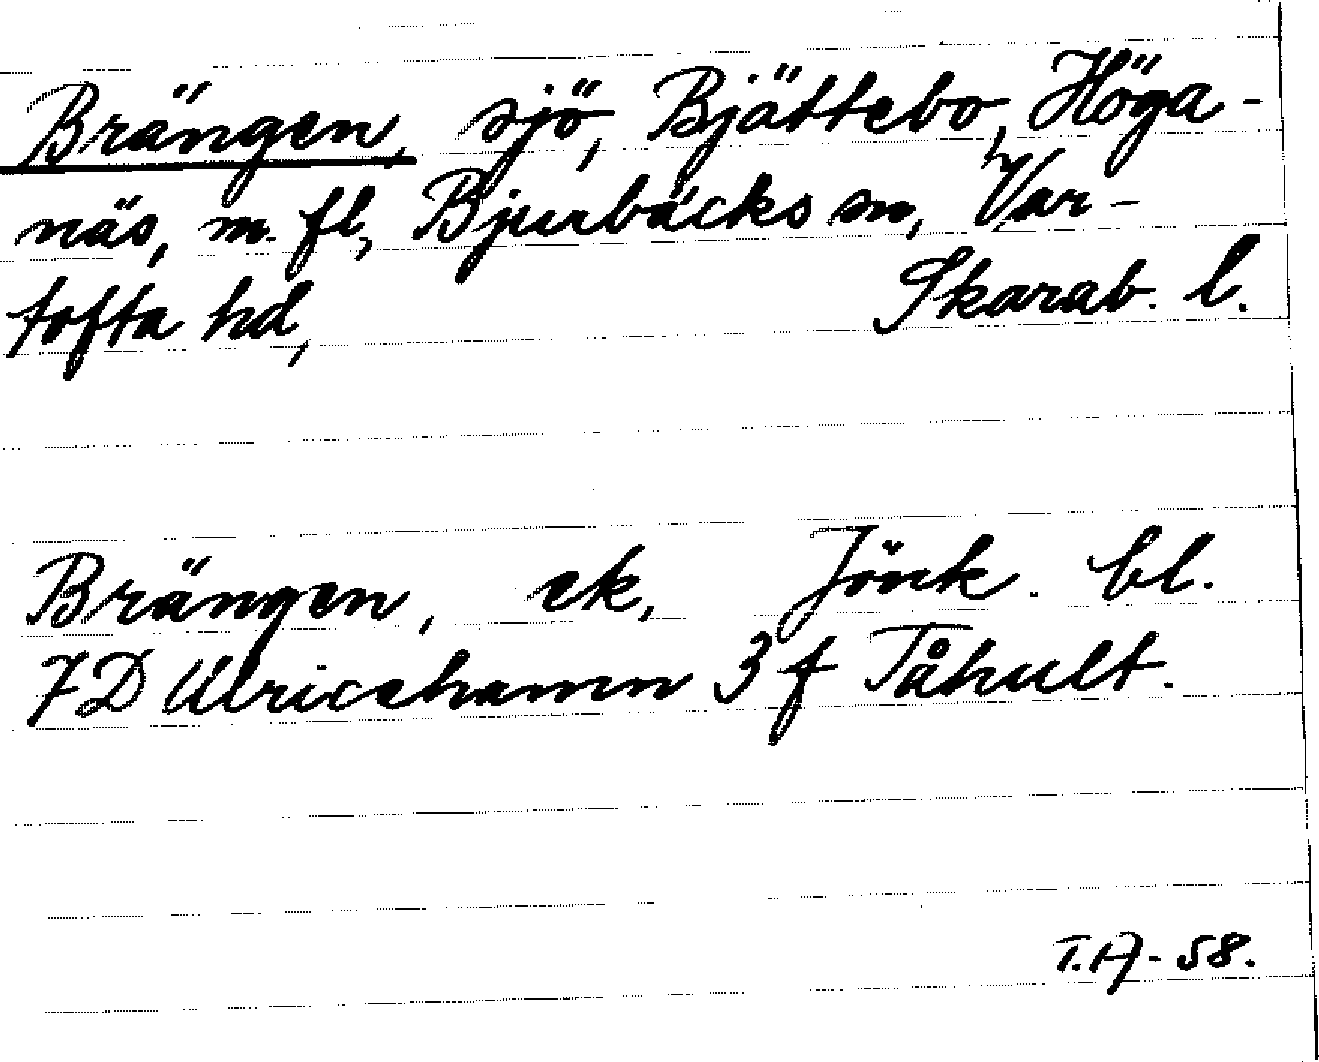 Brängen, sjö, Bjättebo, Höga-
näs, m. fl., Bjurbäcks sn, Var-
tofta hd, Skarab. l.
Brängen, ek, Jönk. bl.
7D Ulricehamn 3 f Tåhult.
T.A-58.